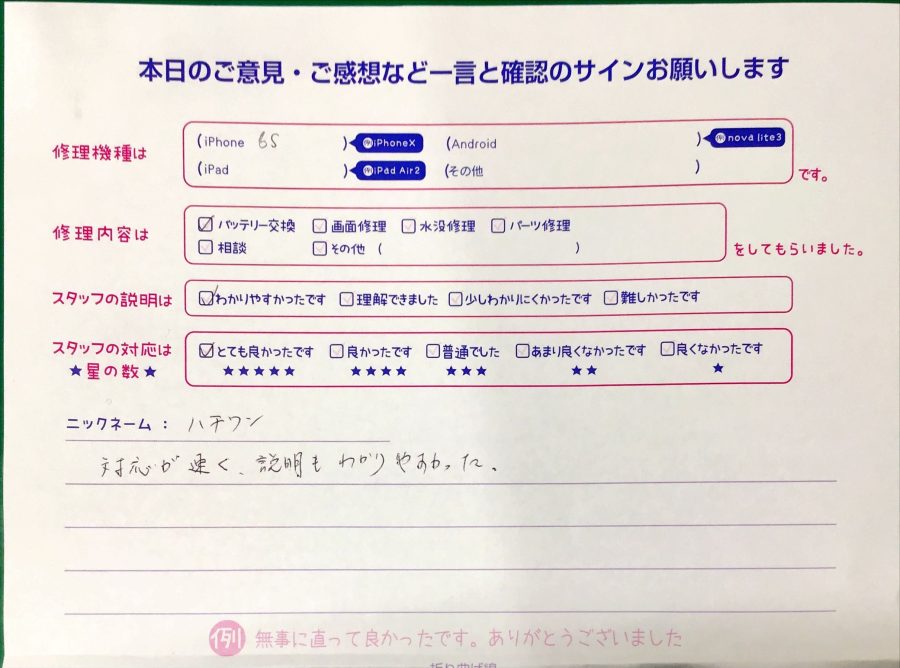 本日のご意見・ご感想など一言と確認のサインお願いします
修理機種は
(iPhone 6S ) 例iPhoneX (Android ) 例nova lite3
(iPad ) 例iPad Air2 (その他 )
です。
修理内容は
バッテリー交換 画面修理 水没修理 パーツ修理
相談 その他 ( )
をしてもらいました。
スタッフの説明は
わかりやすかったです 理解できました 少しわかりにくかったです 難しかったです
スタッフの対応は
★星の数★
とても良かったです 良かったです 普通でした あまり良くなかったです 良くなかったです
★★★★★ ★★★★ ★★★ ★★ ★
ニックネーム： ハチワン
対応が速く、説明もわかりやすかった。
例 無事に直って良かったです。ありがとうございました